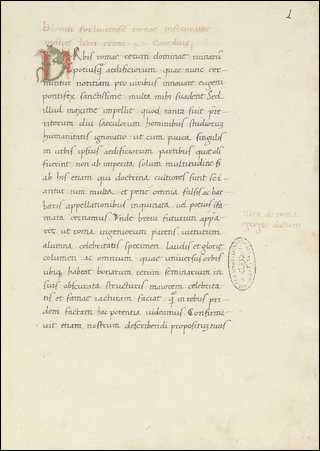 1
Blondi forliviensis romae instauratae
URbis romae rerum dominae ruinarum
potiusq aedificiorum quae nunc cer-
nuntur notitiam pro viribus innovare eugeni
pontifex sanctissime multa mihi suadent Sed
illud maxime impellit quod tanta fuit prae
ritorum diu saeculorum hominibus studiorum
humanitatis ignoratio ut cum pauca singulis
in urbis ipsius aedificiorum partibus quae oli
fuerint non ab imperita solum multitudine si
ab his etiam qui doctrina cultiores sunt sci
antur tum multa et pene omnia falsis ac bar
baris appellationibus inquinata vel potius ifa
mata cernamus Unde brevi futurum appa
ret ut roma ingeniorum parens virtutum
alumna celebritatis specimen laudis et gloriae
columen ac omnium quae universus orbis
ubiq habeat bonarum rerum seminarium in
suis obscurata structuris maiorem celebrita
tis et famae iacturam faciat q in rebus pri
dem factam hac potentia videamus Confirma
vit etiam nostrum describendi propositum tuus